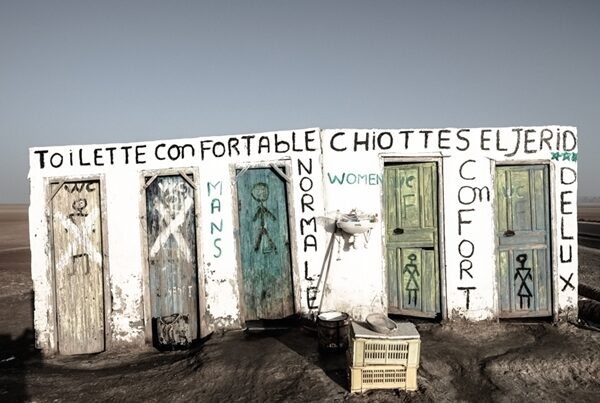 TOILETTE CONFORTABLE
CHIOTTES EL JERID
WC
MANS
NORMALE
WOMEN
WC
CONFORT
DELUX